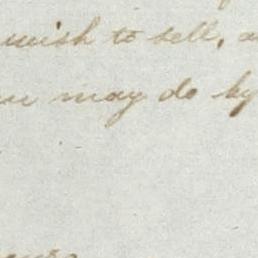 wish to sell,
may do by